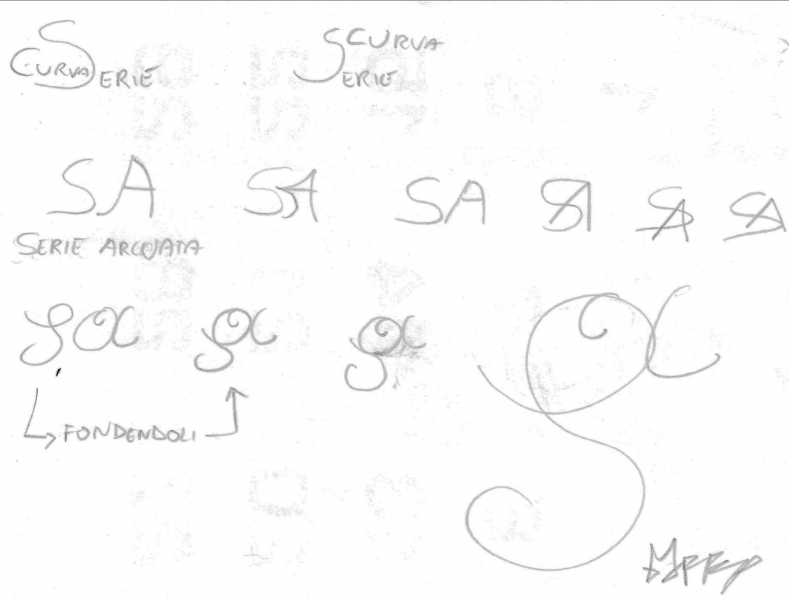 SCURVA SERIE
SCURVA
SERIE
SA SA SA SA SA SA
SERIE ARCUATA
Sα Sα Sα Sα
FONDENDOLI